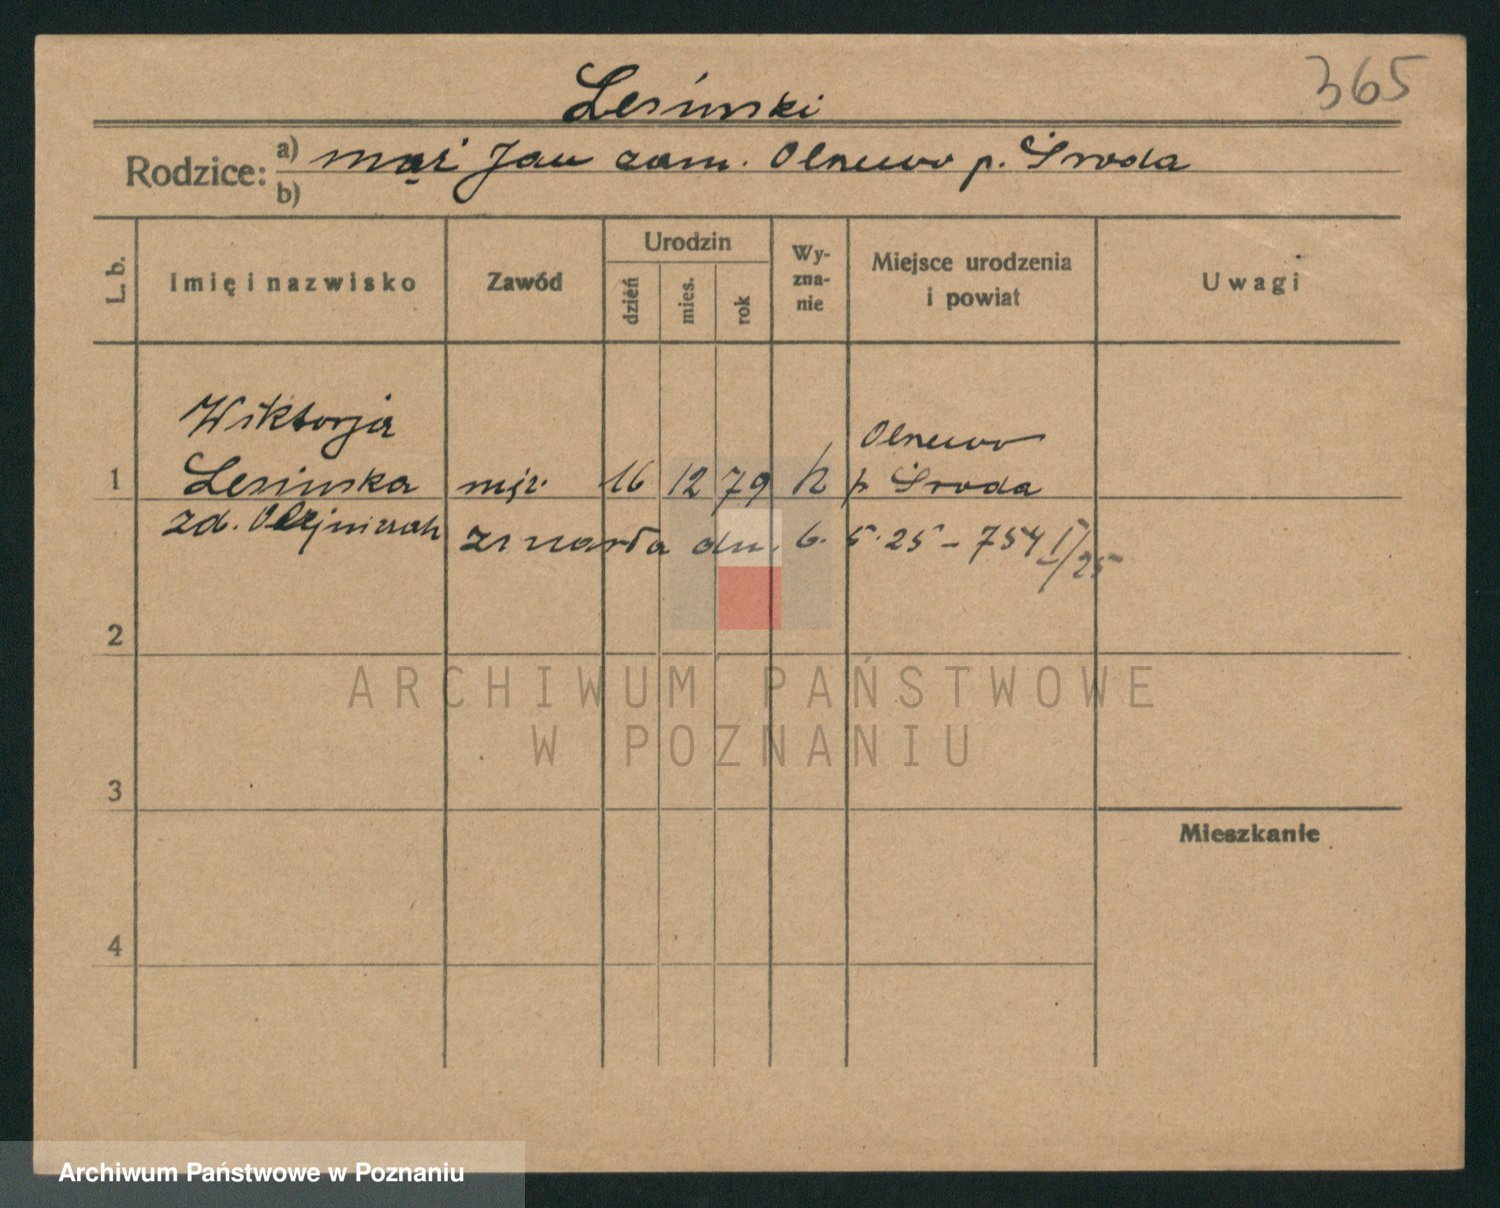 365
Lesinski
Rodzice: a) mąż Jan zam. Olszewo p. Środa
b)
L. b.
Imię i nazwisko
Zawód
Urodzin
dzień
mies.
rok
Wy-
zna-
nie
Miejsce urodzenia
i powiat
Uwagi
Wiktorja
1 Lesinska 16 12 79 k p Środa
zd.
zmarła dn. 6. 5. 25 – 754 I/25
2
ARCHIWUM PAŃSTWOWE
W POZNANIU
3
Mieszkanie
4
Archiwum Państwowe w Poznaniu